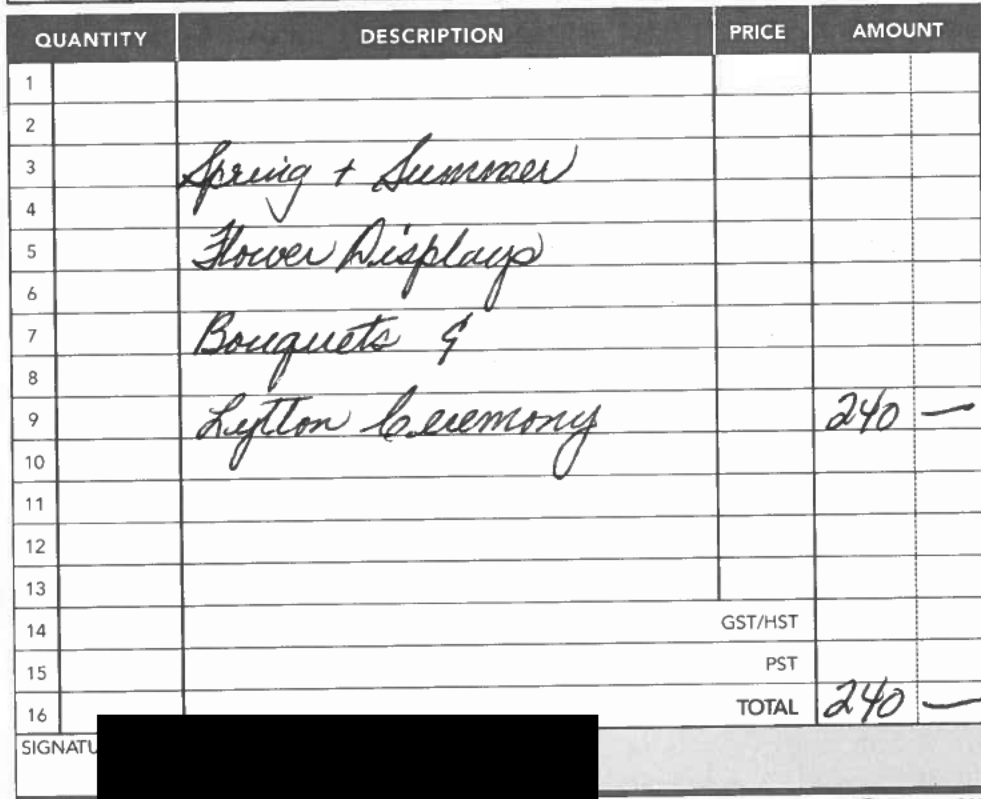 QUANTITY DESCRIPTION PRICE AMOUNT
1
2
3 Spring + Summer
4
5 Flower Displays
6
7 Bouquets &
8
9 Lytton Ceremony 240 —
10
11
12
13
14 GST/HST
15 PST
16 TOTAL 240 —
SIGNATU